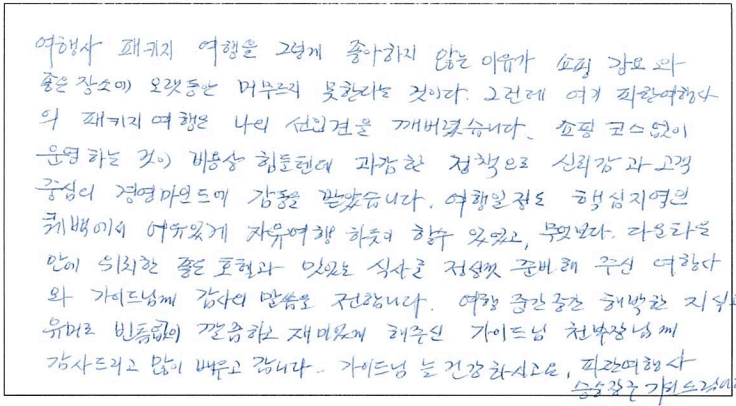 여행사 패키지 여행을 그렇게 좋아하지 않는 이유가 쇼핑 강요와
좋은 장소에 오랫동안 머무르지 못한다는 것이다. 그런데 여기 파란여행사
의 패키지여행은 나의 선입견을 깨버렸습니다. 쇼핑 코스없이
운영하는 것이 비용상 힘들텐데 과감한 정책으로 신뢰감과 고객
중심의 경영마인드에 감동을 받았습니다. 여행일정도 핵심지역인
퀘백에서 여유있게 자유여행 하듯이 할수 있었고, 무엇보다. 다운타운
안에 위치한 좋은 호텔과 맛있는 식사를 정성껏 준비해 주신 여행사
와 가이드님께 감사의 말씀을 전합니다. 여행 중간중간 해박한 지식과
유머로 빈틈없이 깔끔하고 재미있게 해주신 가이드님 천부장님께
감사드리고 많이 배우고 갑니다.. 가이드님 늘 건강하시고요, 파란여행사
승승장구 기원드립니다